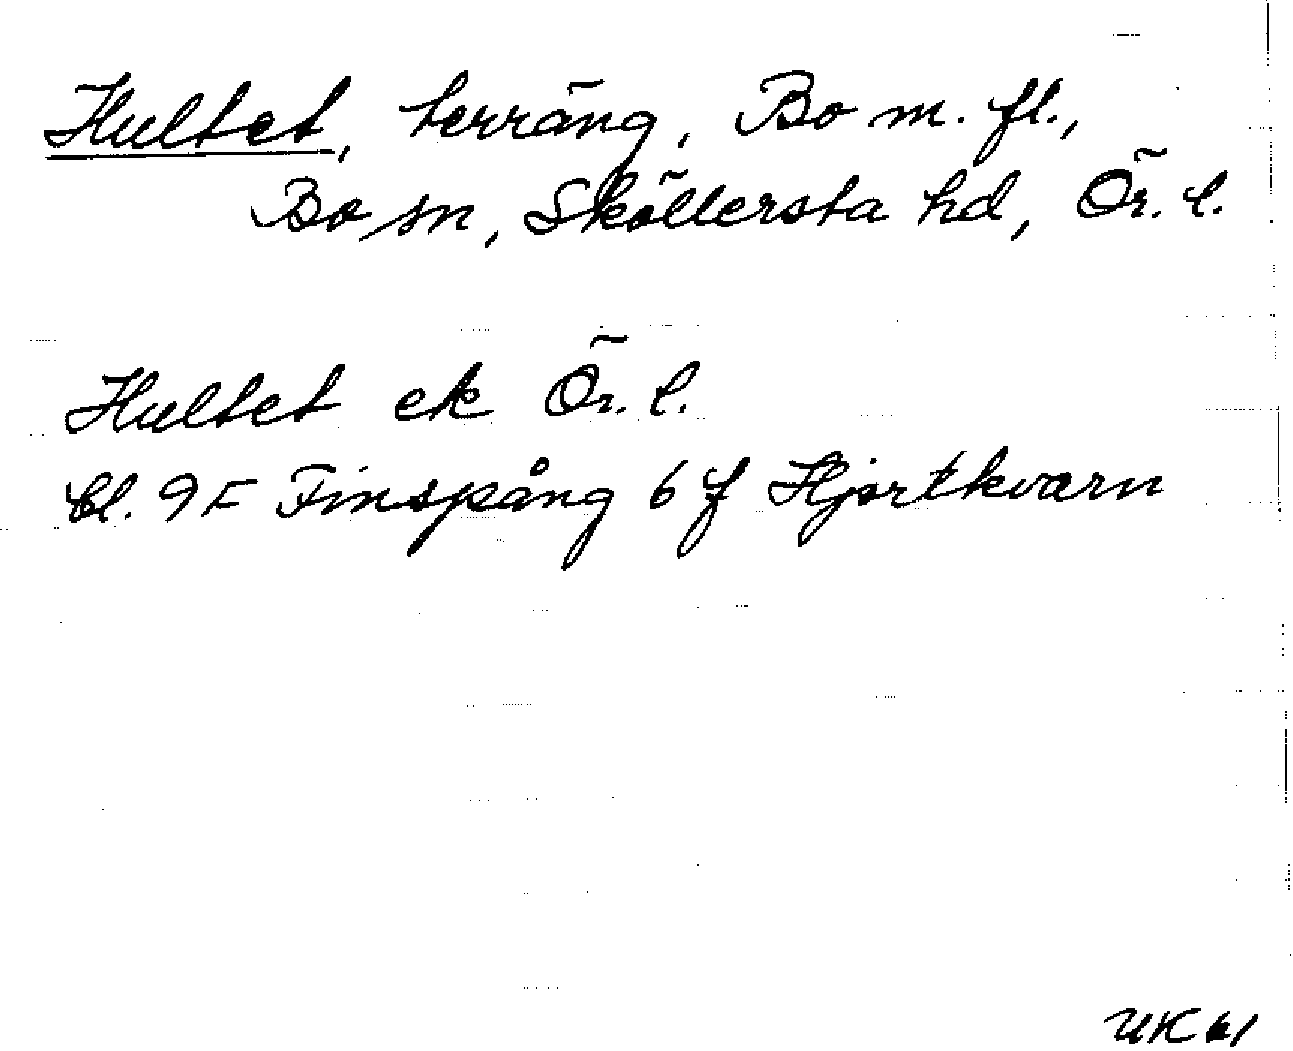 Hultet, terräng, Bo m. fl.,
Bo sn, Sköllersta hd, Ör. l.
Hultet ek Ör. l.
bl. 9 F Finspång 6 f Hjortkvarn
UK 61